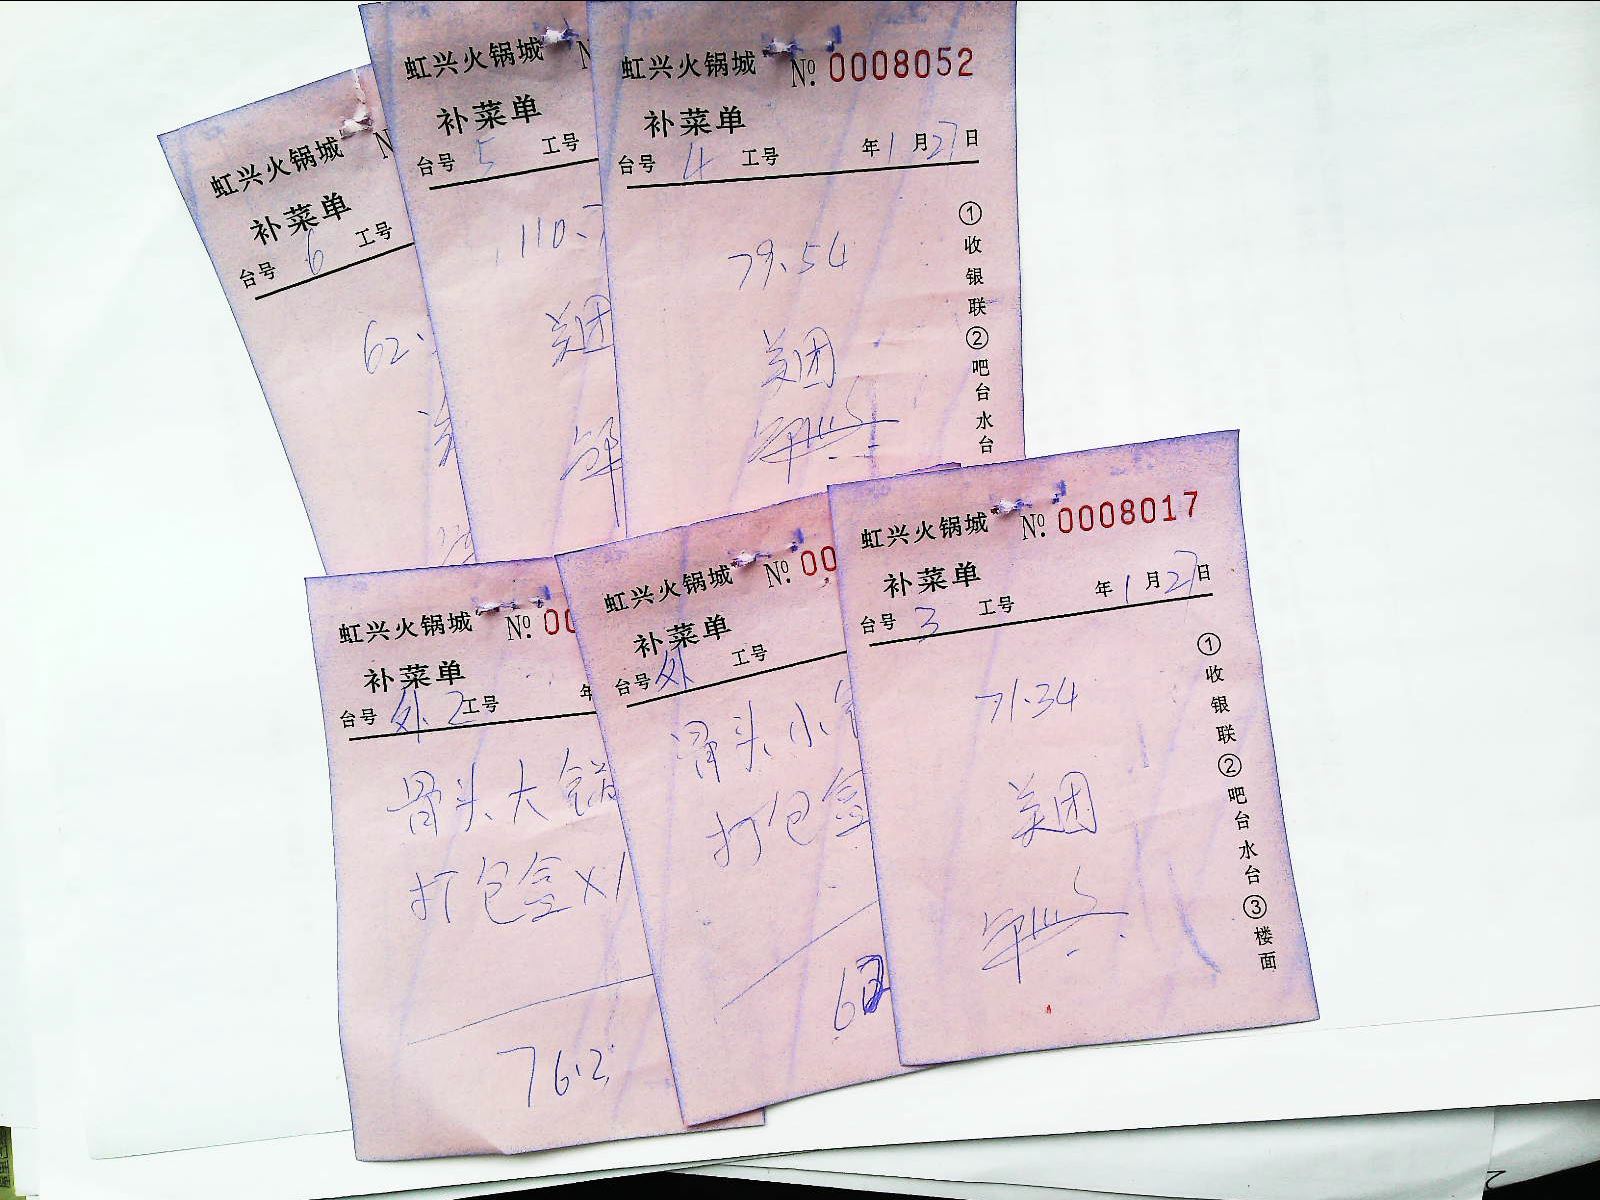 虹兴火锅城 N
补菜单
台号 6 工号
62.
虹兴火锅城 N
补菜单
台号 5 工号
110.7
美团
虹兴火锅城 №. 0008052
补菜单
台号 4 工号 年 1 月 27 日
79.54
美团
①收银联②吧台水台
虹兴火锅城 №. 00
补菜单
台号 外2 工号 年
骨头大锅
打包盒X1
76.2
虹兴火锅城 №. 00
补菜单
台号 外 工号
骨头小
打包盒
虹兴火锅城 №. 0008017
补菜单
台号 3 工号 年 1 月 27 日
71.34
美团
①收银联②吧台水台③楼面